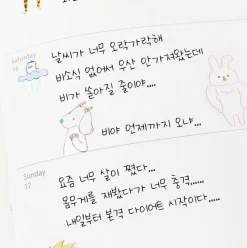 Saturday
16
날씨가 너무 오락가락해
비소식 없어서 우산 안가져왔는데
비가 쏟아질 줄이야....
비야 언제까지 오냐...
Sunday
17
요즘 너무 살이 쪘다...
몸무게를 재봤다가 너무 충격.....
내일부터 본격 다이어트 시작이다.....